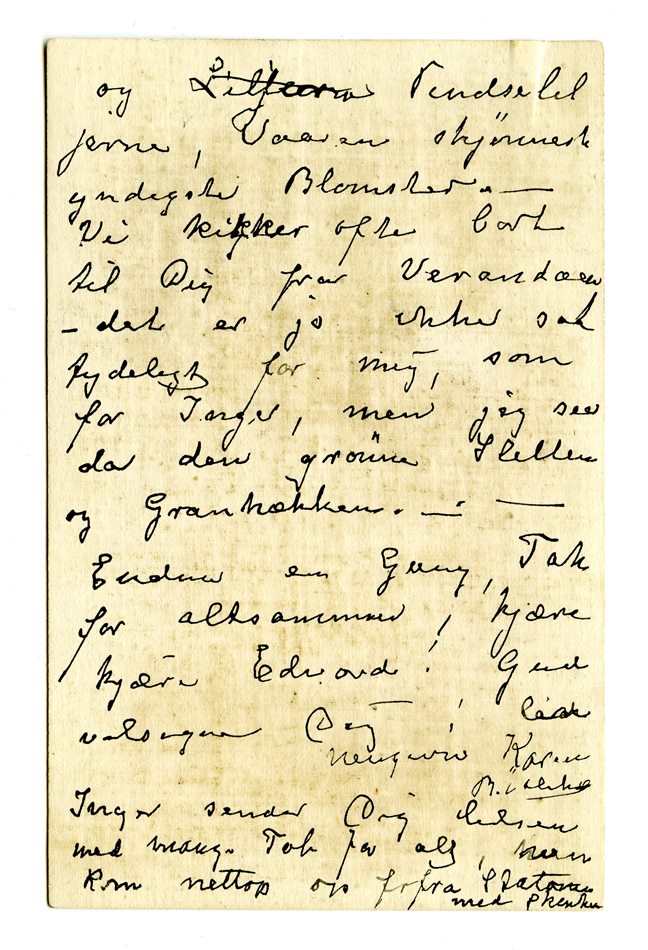 og Liljerne Pindselil
jerne, Vaarens skjønneste
yndigste Blomster. —
Vi kikker ofte bort
til Dig fra Verandaen
– det er jo ikke saa
tydeligt for mig, som
for Inger, men jeg seer
da den grønne Sletten
og Granhækken. — —
Endnu en Gang, Tak
for altsammen, kjære
kjære Edvard! Gud
velsigne Dig!
Karen
Inger sender Dig
med mange Tak for alt, hun
kom nettop op fra Stationen
med